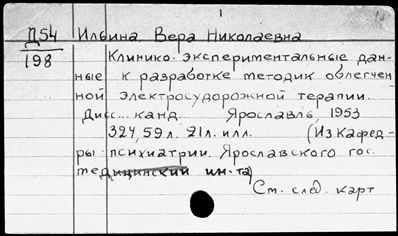 Д54 Ильина, Вера Николаевна
198 Клинико-экспериментальные дан-
ные к разработке методик облегчен
ной электросудорожной терапии.
Дисс... канд. Ярославль, 1953
324, 59л. 21л. илл. (Из Кафед-
ры психиатрии. Ярославского гос.
медицинский ин-та)
См. след. карт